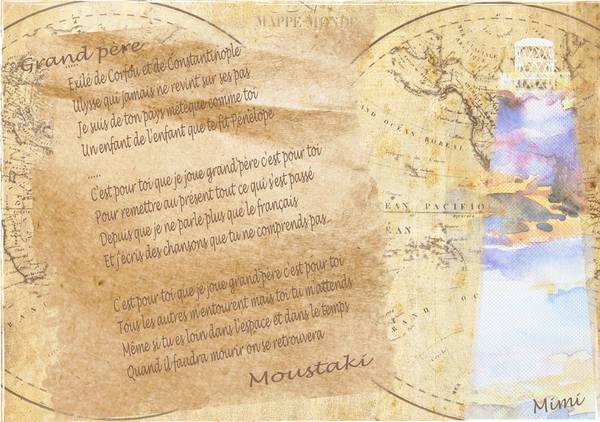 MAPPE-MONDE
Grand père
.....
Exilé de Corfou et de Constantinople
Ulysse qui jamais ne revint sur ses pas
Je suis de ton pays métèque comme toi
Un enfant de l'enfant que te fit Pénélope
.....
C'est pour toi que je joue grand'père c'est pour toi
Pour remettre au présent tout ce qui s'est passé
Depuis que je ne parle plus que le français
Et j'écris des chansons que tu ne comprends pas...
C'est pour toi que je joue grand'père c'est pour toi
Tous les autres m'entourent mais toi tu m'attends
Même si tu es loin dans l'espace et dans le temps
Quand il faudra mourir on se retrouvera
Moustaki
GRAND OCÉAN BOREAL
OCEAN PACIFIQ
OCÉAN
GRAND OCEAN
Mimi